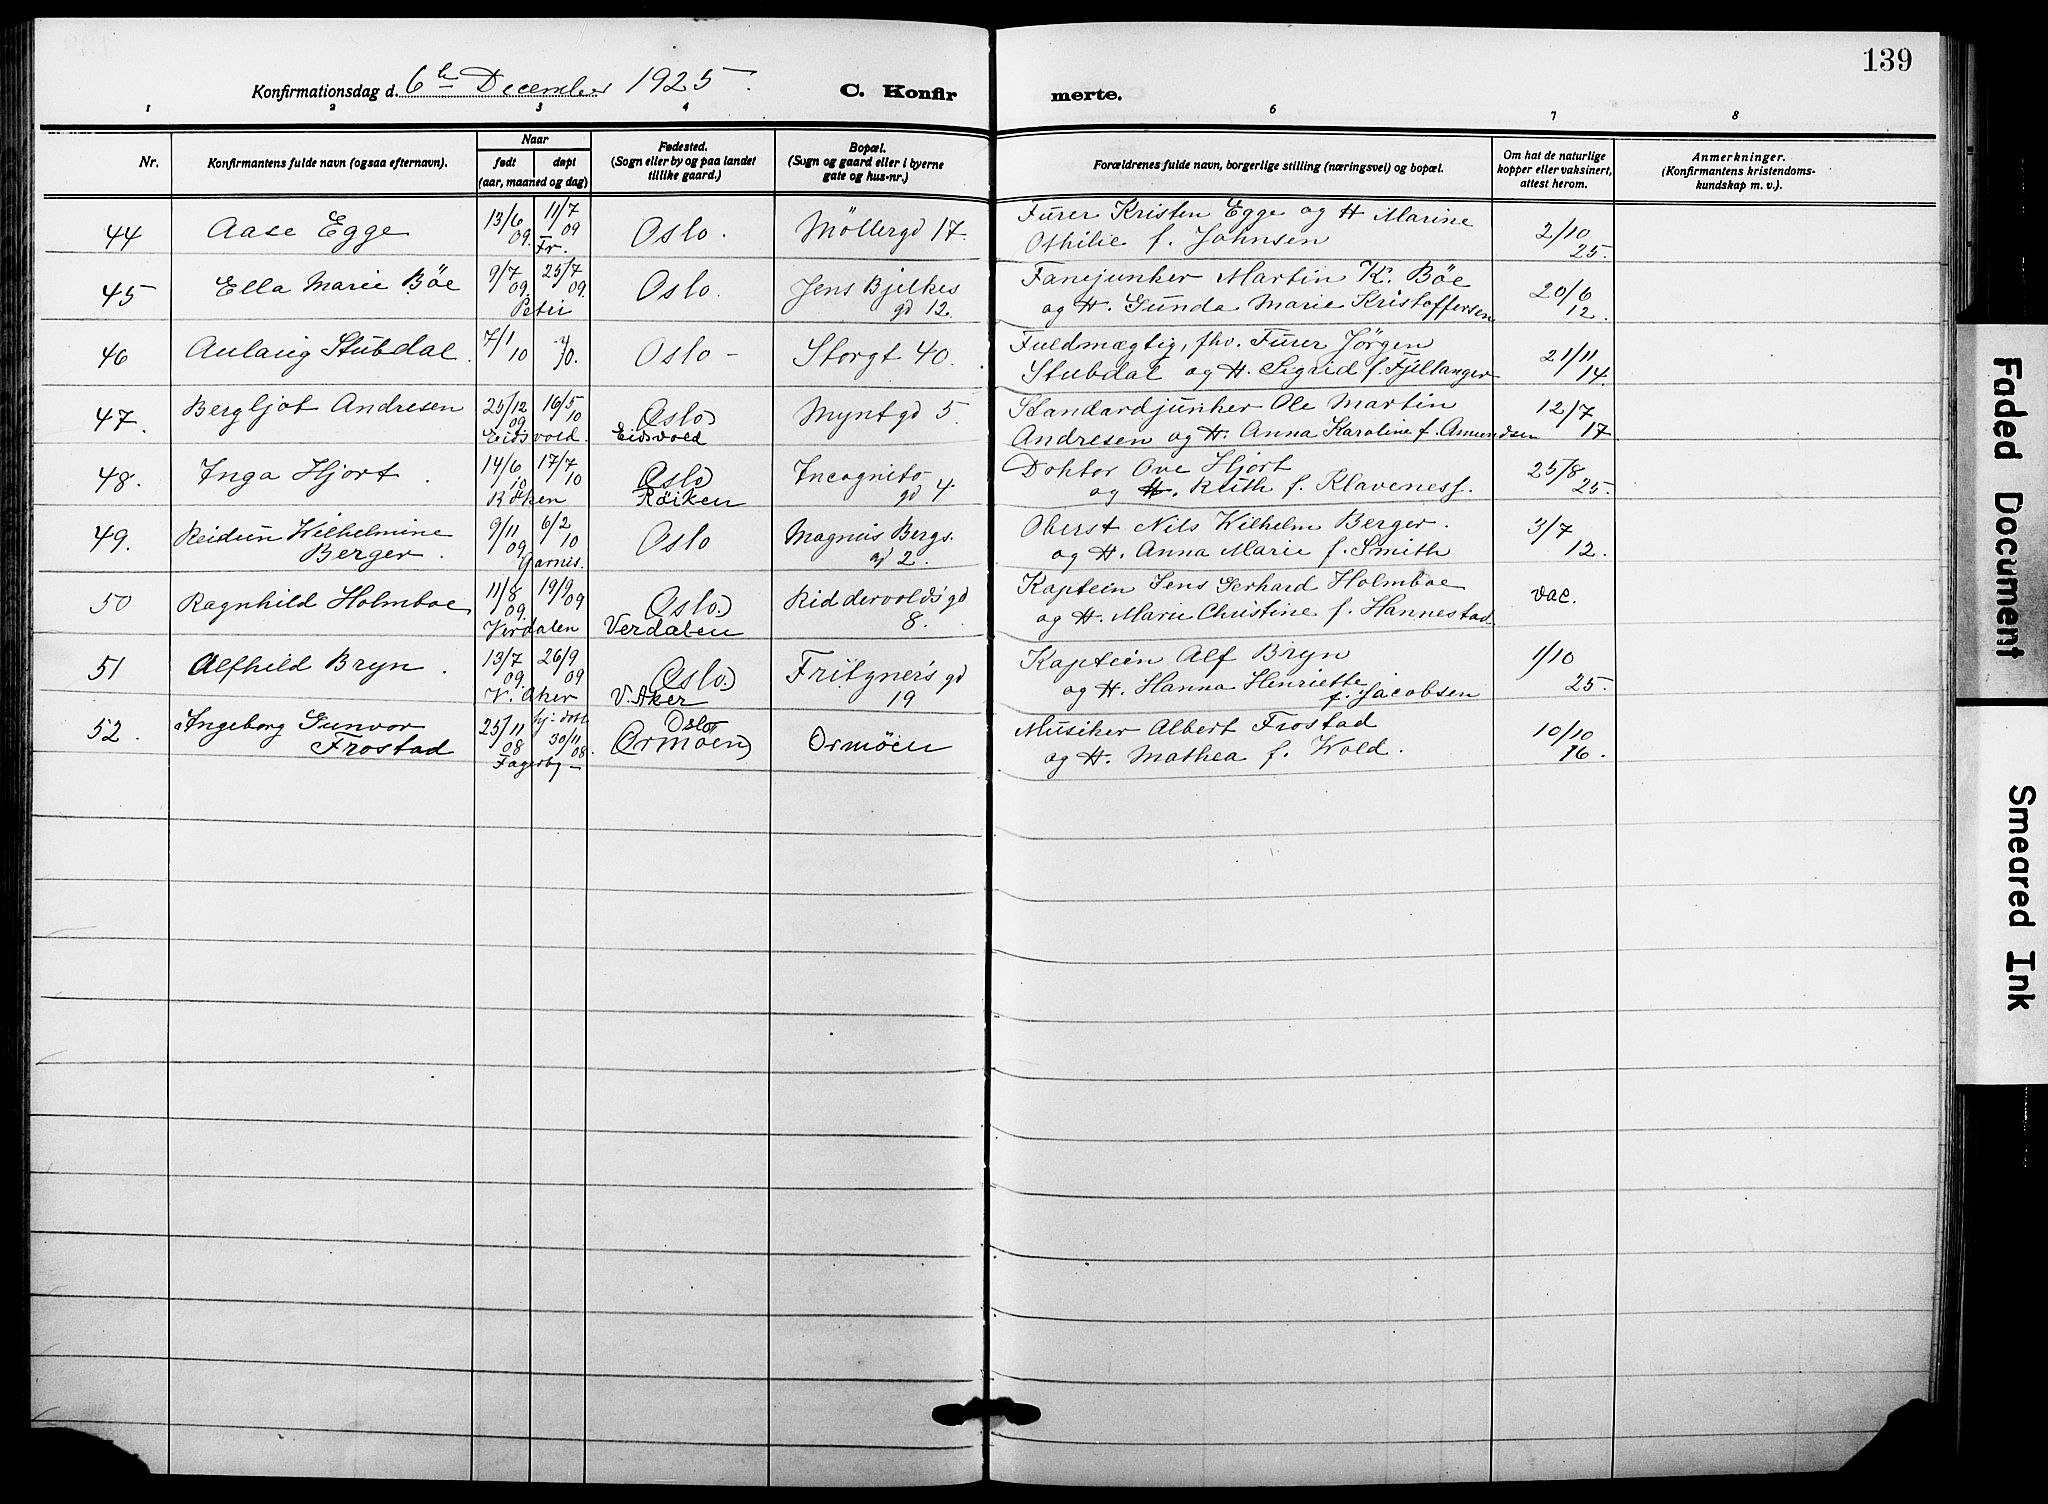 139
Konfirmationsdag d. 6te December 1925.
C. Konfir
merte.
1 2 3 4 6 7 8
Nr.
Konfirmantens fulde navn (ogsaa efternavn).
Naar
født
døpt
(aar, maaned og dag)
Fødested.
(Sogn eller by og paa landet
tillike gaard.)
Bopæl.
(Sogn og gaard eller i byerne
gate og hus-nr.)
Forældrenes fulde navn, borgerlige stilling (næringsvei) og bopæl.
Om hat de naturlige
kopper eller vaksinert,
attest herom.
Anmerkninger.
(Konfirmantens kristendoms-
kundskap m. v.).
44 Aase Egge 13/6 09. 11/7 09 Fr. Oslo. Möllergd 17. Furer Kristen Egge og H Marine
Othilie f. Johnsen 2/10 25.
45 Ella Marie Böe 9/7 09. 25/7 09. Petri Oslo. Jens Bjelkes
gd 12. Fanejunker Martin K. Böe
og H. Gunda Marie Kristoffersen 20/6 12.
46 Aulaug Stubdal. 7/1 10 Oslo - Storgt 40. Fuldmægtig, fhv. Furer Jørgen
Stubdal og H. Sigrid f. Fjellanger 21/11 14.
47. Bergljot Andresen 25/12 09 16/5 10 Eidsvold. (Oslo)
Eidsvold Myntgd 5 Standardjunker Ole Martin
Andresen og H. Anna Karoline f. Amundsen 12/7 17.
48. Inga Hjort. 14/6 10 17/7 10 Röken (Oslo)
Röiken Incognito
gd 4 Doktor Ove Hjort
og H. Ruth f. Klaveness. 25/8 25.
49. Reidun Wilhelmine
Berger. 9/11 09 6/2 10 Garnis. Oslo Magnus Bergs.
gd 2. Oberst Nils Wilhelm Berger.
og H. Anna Marie f. Smith 3/7 12.
50 Ragnhild Holmboe 11/8 09. 19/9 09 Verdalen (Oslo.)
Verdalen Riddervolds gd
8. Kaptein Jens Gerhard Holmboe
og H. Marie Christine f. Hannestad vac.
51 Alfhild Bryn. 13/7 09 26/9 09 V. Aker (Oslo.)
V. Aker Fritzners gd
19 Kaptein Alf Bryn
og H. Hanna Henriette
f. Jacobsen 1/10 25.
52. Ingeborg Gunvor
Frostad 25/11 08 hj: døbt 30/11 08. Fagerby - Oslo
(Ormöen) Ormöen Musiker Albert Frostad
og H. Mathea f. Wold. 10/10 16.
Faded Document
Smeared Ink